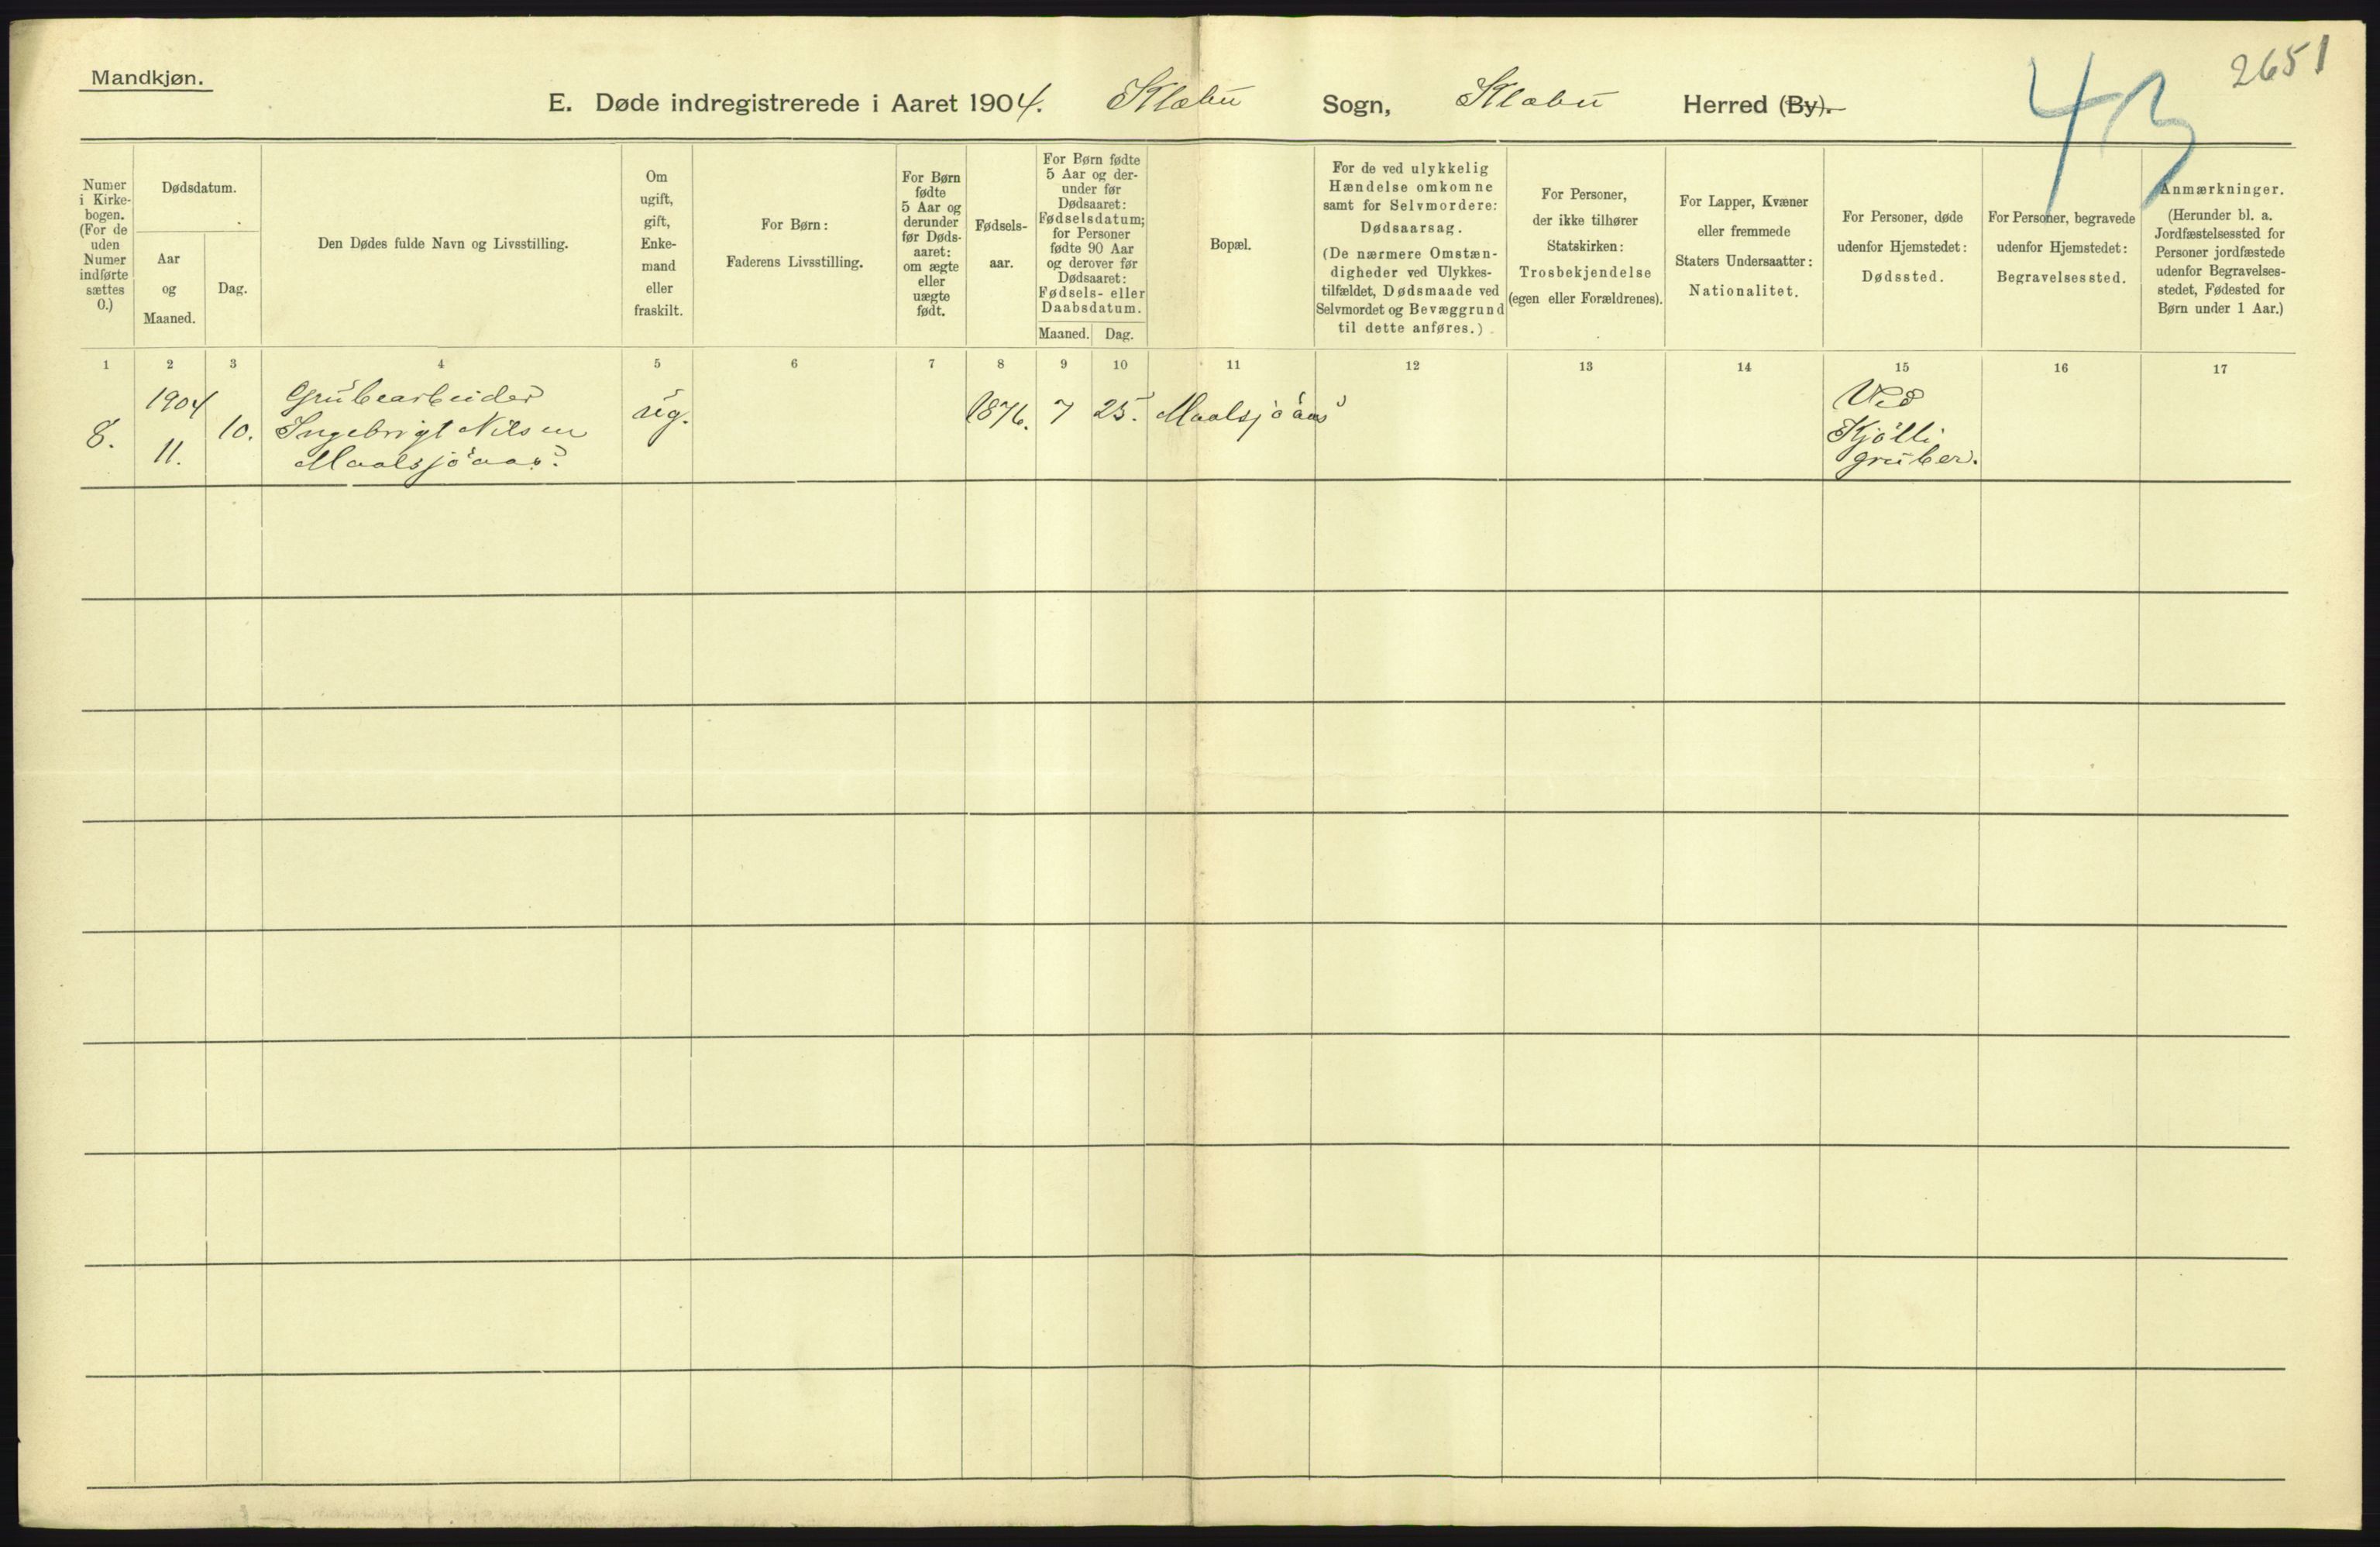 2651
43
Mandkjøn.
E. Døde indregistrerede i Aaret 1904. Klæbu Sogn, Klæbu Herred (By).
Numer
i Kirke-
bogen.
(For de
uden
Numer
indførte
sættes
0.)
Dødsdatum.
Aar
og
Maaned.
Dag.
Den Dødes fulde Navn og Livsstilling.
Om
ugift,
gift,
Enke-
mand
eller
fraskilt.
For Børn:
Faderens Livsstilling.
For Børn
fødte
5 Aar og
derunder
før Døds-
aaret:
om ægte
eller
uægte
født.
Fødsels-
aar.
For Børn fødte
5 Aar og der-
under før
Dødsaaret:
Fødselsdatum;
for Personer
fødte 90 Aar
og derover før
Dødsaaret:
Fødsels- eller
Daabsdatum.
Maaned. Dag.
Bopæl.
For de ved ulykkelig
Hændelse omkomne
samt for Selvmordere:
Dødsaarsag.
(De nærmere Omstæn-
digheder ved Ulykkes-
tilfældet, Dødsmaade ved
Selvmordet og Bevæggrund
til dette anføres.)
For Personer,
der ikke tilhører
Statskirken:
Trosbekjendelse
(egen eller Forældrenes).
For Lapper, Kvæner
eller fremmede
Staters Undersaatter:
Nationalitet.
For Personer, døde
udenfor Hjemstedet:
Dødssted.
For Personer, begravede
udenfor Hjemstedet:
Begravelsessted.
Anmærkninger.
(Herunder bl. a.
Jordfæstelsessted for
Personer jordfæstede
udenfor Begravelses-
stedet, Fødested for
Børn under 1 Aar.)
1 2 3 4 5 6 7 8 9 10 11 12 13 14 15 16 17
8.
1904
11.
10.
Grubearbeider
Ingebrigt Nilsen
Maalsjöaas.
ug.
1876.
7
25.
Maalsjöaas
Ved
Kjölli
gruber.